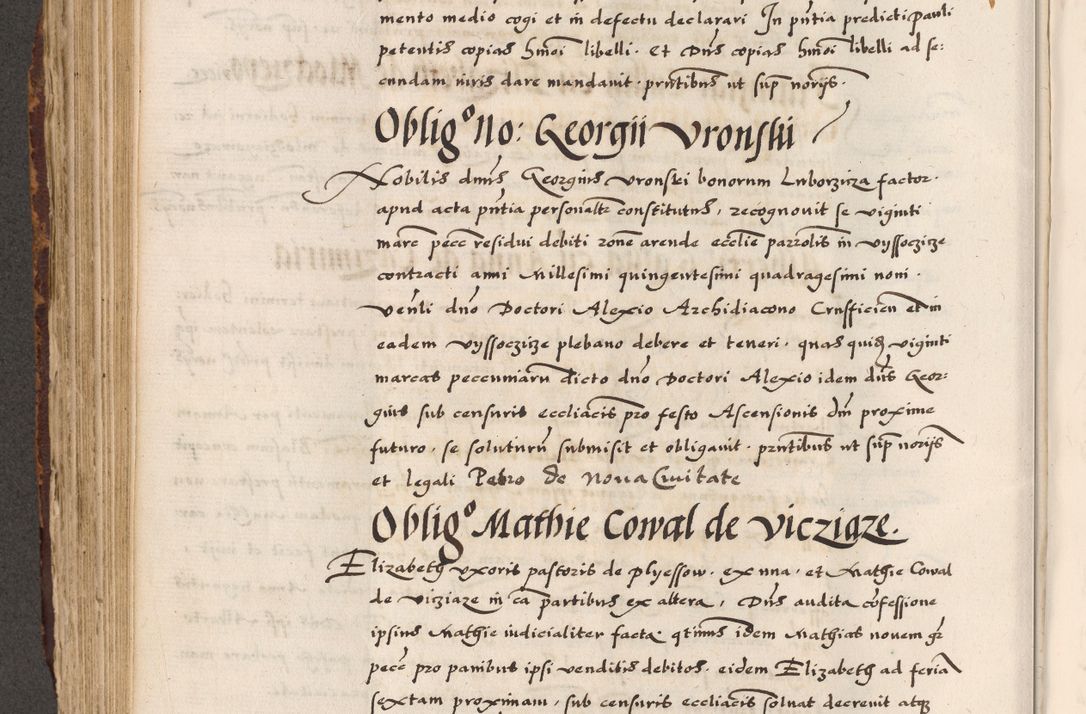 mento medio cogi et in defectu declarari In pñtia predicti Pauli
petentis copias hmõi libelli. Et Dñs copias hmõi libelli ad se:
cundam iuris dare mandavit. pñtibus ut sup norijs.
Oblig.º No: Georgii Vronski
Nobilis dnus Georgius Vronski bonorum Luborzicza factor.
apud acta pñtia personalr constitutus, recognovit se viginti
marc pecc residui debiti rone arende ecclie parrolis in Vyssoczize
contracti anni Millesimi quingentesimi quadragesimi noni.
venli dno Doctori Alexio Archidiacono Crusficien et in
eadem Vyssoczize plebano debere et teneri. quas quidz viginti
marcas peccuniaru dicto dno Doctori Alexio idem dns Geor:
gius sub censuris eccliacis pro festo Ascensionis dni proxime
futuro. se soluturu submisit et obligavit. pntibus ut sup norijs
et legali Petro de Nova Civitate
Oblig.º Mathie Cowal de Vicziaze.
Elizabeth uxoris pastoris de Plyessow. ex una. et Mathie Cowal
de Viziaze in ca partibus ex altera, Dns audita cofessione
ipsius Mathie iudicialiter facta. qtinus idem Mathias novem gr
pecc pro panibus ipsi venditis debitos. eidem Elizabeth ad feria
sextam proximam, sub censuris eccliacis solvat decrevit atq